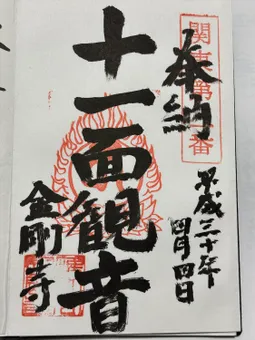 奉納
十一面観音
平成三十年
四月四日
金剛寺